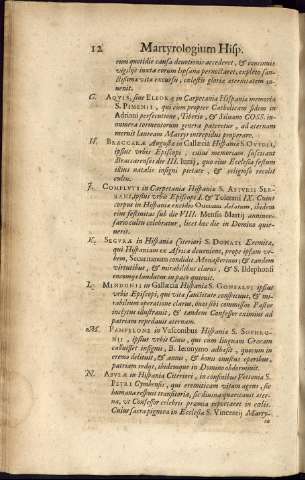 12 Martyrologium Hisp.
eum quotidie causa deuotionis accederet, & continuis
vigilijs iuxta eorum lipsana pernoctaret, expleto san-
ctissimæ vitæ excursu, cælestis gloriæ æternitatem in-
uenit.
G. AQVIS, siue ELEORÆ in Carpetania Hispaniæ memoria
S. PIMENII, qui cum propter Catholicam fidem in
Adriani persecutione, Tiberio, & Silauno COSS. in-
numera tormentorum genera pateretur, ad æternam
meruit lauream Martyr intrepidus properare.
H. BRACCARÆ Augustæ in Callæcia Hispaniæ S. OVIDII,
ipsius vrbis Episcopi, cuius memoriam fasciunt
Braccarenses die III. Iunij, quo eius Ecclesia festum
illius natalis insigni pietate, & religioso recolit
cultu.
I. COMPLVTI in Carpetania Hispaniæ S. ASTVRII SER-
RANI, ipsius vrbis Episcopi I. & Toletani IX. Cuius
corpus in Hispaniæ excidio Ouetum delatum, ibidem
eius festiuitas sub die VIII. Mensis Martij anniuer-
sario cultu celebratur, licet hoc die in Domino quie-
uerit.
K. SEGVRÆ in Hispania Citeriori S. DONATI Eremitæ,
qui Hispaniam ex Africa deueniens, prope ipsam vr-
bem, Seruitanum condidit Monasterium; & tandem
virtutibus, & mirabilibus clarus, & S. Ildephonsi
encomijs laudatus in pace quieuit.
L. MINDONII in Gallæcia Hispaniæ S. GONSALVI ipsius
vrbis Episcopi, qui vitæ sanctitate conspicuus, & mi-
rabilium operatione clarus, oues sibi commissas Pastor
inclytus illustrauit, & tandem Confessor eximius ad
patriam repedauit æternam.
M. PAMPELONÆ in Vasconibus Hispaniæ S. SOPHRO-
NII, ipsius vrbis Ciuis, qui cum linguam Græcam
calluisset insignis, B. Ieronymo adhæsit, quocum in
eremo detinuit, & annis, & bonis onustus operibus,
patriam rediens, ibidemque in Domino obdormiuit.
N. ABVLÆ in Hispania Citeriori, in confinibus Vettoniæ S.
PETRI Cymbrensis, qui eremiticam vitam agens, sic
humana respuit transitoria, sic diuina quæritauit æter-
na, vt Confessor celebris præmia reportaret in cœlis.
Cuius sacra pignora in Ecclesia S. Vincentij Marty-
ris